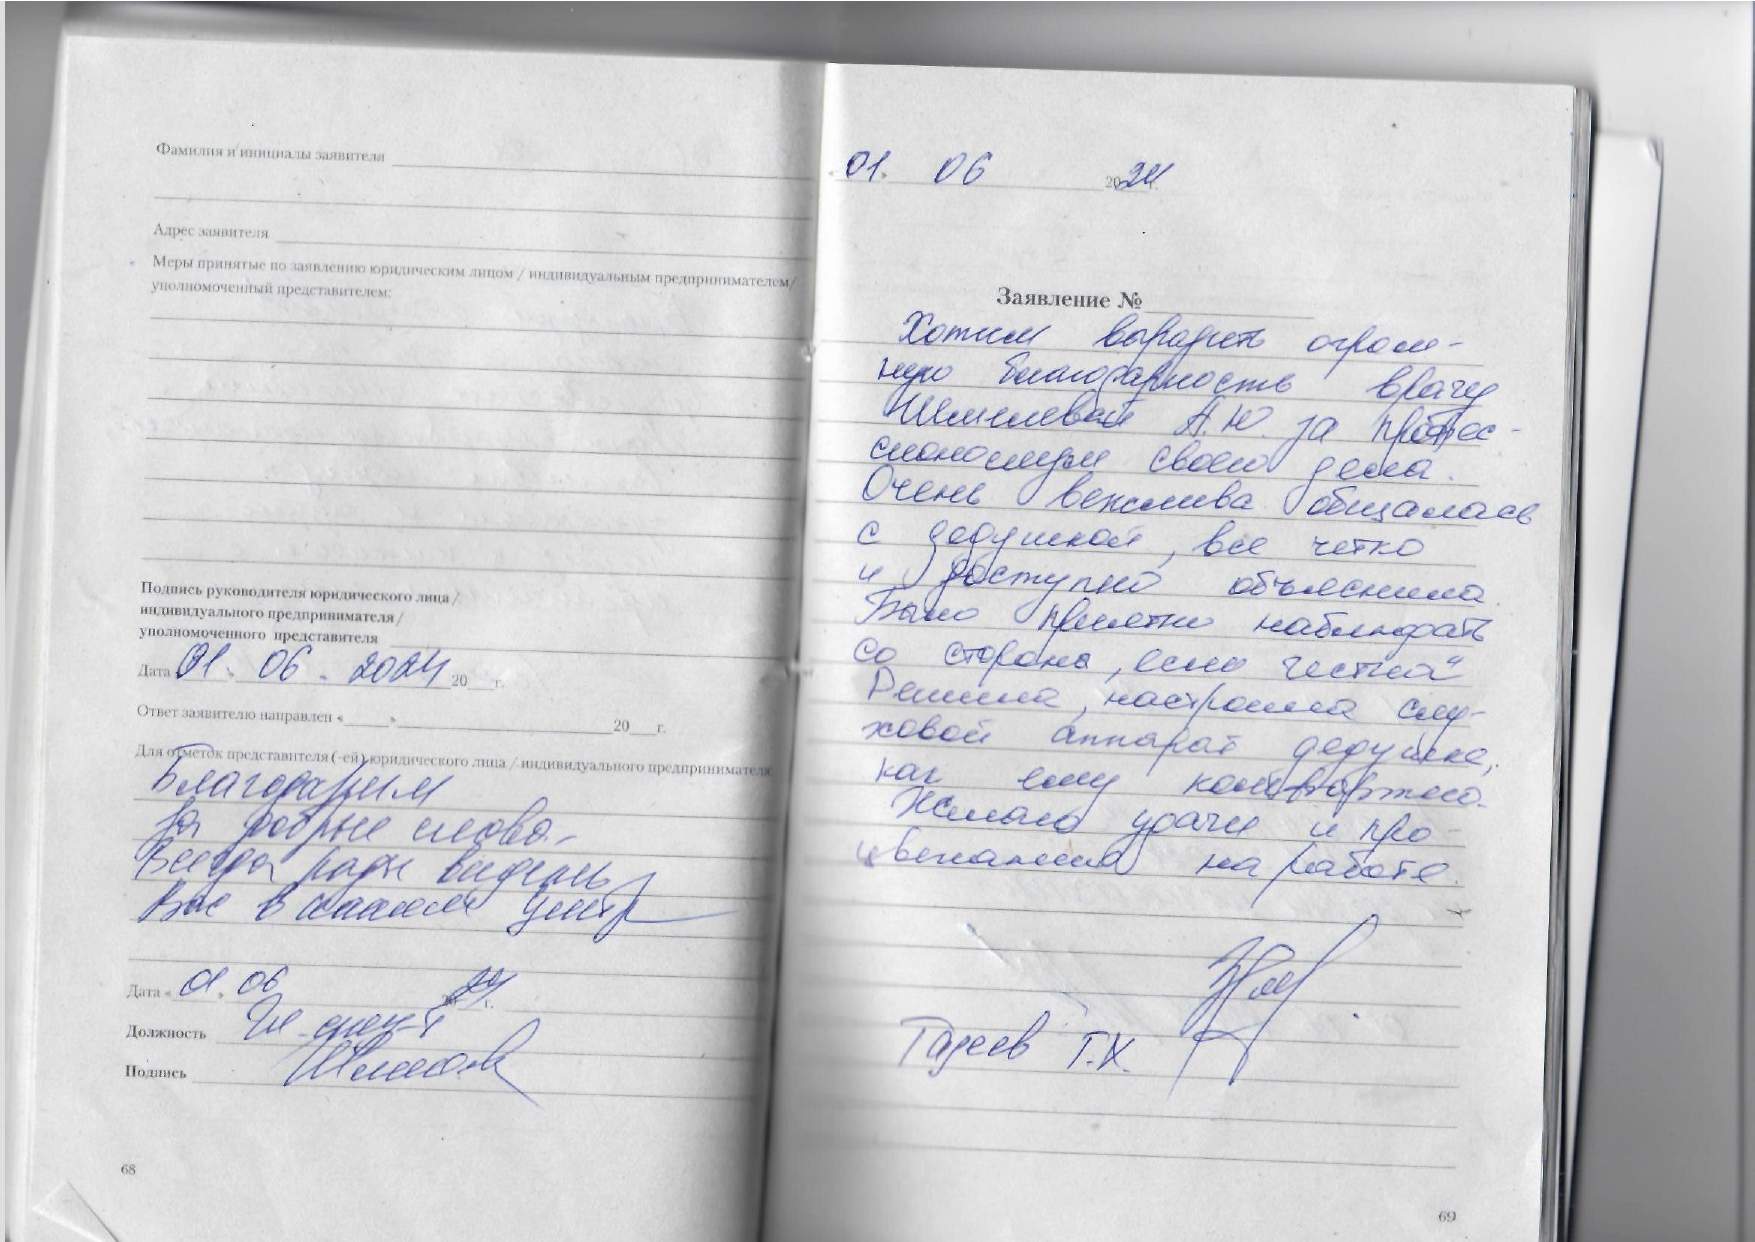 Фамилия и инициалы заявителя
Адрес заявителя
Меры принятые по заявлению юридическим лицом / индивидуальным предпринимателем/
уполномоченный представителем:
Подпись руководителя юридического лица /
индивидуального предпринимателя /
уполномоченного представителя
Дата 01. 06. 2024 20 г.
Ответ заявителю направлен « » 20 г.
Для отметок представителя (-ей) юридического лица / индивидуального предпринимателя
Благодарим
за добрые слова.
Всегда рады видеть
Вас в нашем центре
Дата « 01 » 06 2024 г.
Должность
Подпись
68
« 01. » 06 2024 г.
Заявление №
Хотим выразить огром-
ную благодарность врачу
Шмелевой А.Ю. за профес-
сионализм своего дела.
Очень вежлива общалась
с дедушкой, все четко
и доступно объяснила.
Было приятно наблюдать
со стороны
Решила, настроила слу-
ховой аппарат дедушке,
как ему комфортно.
Желаю удачи и про-
цветания на работе.
Гареев Г.Х.
69